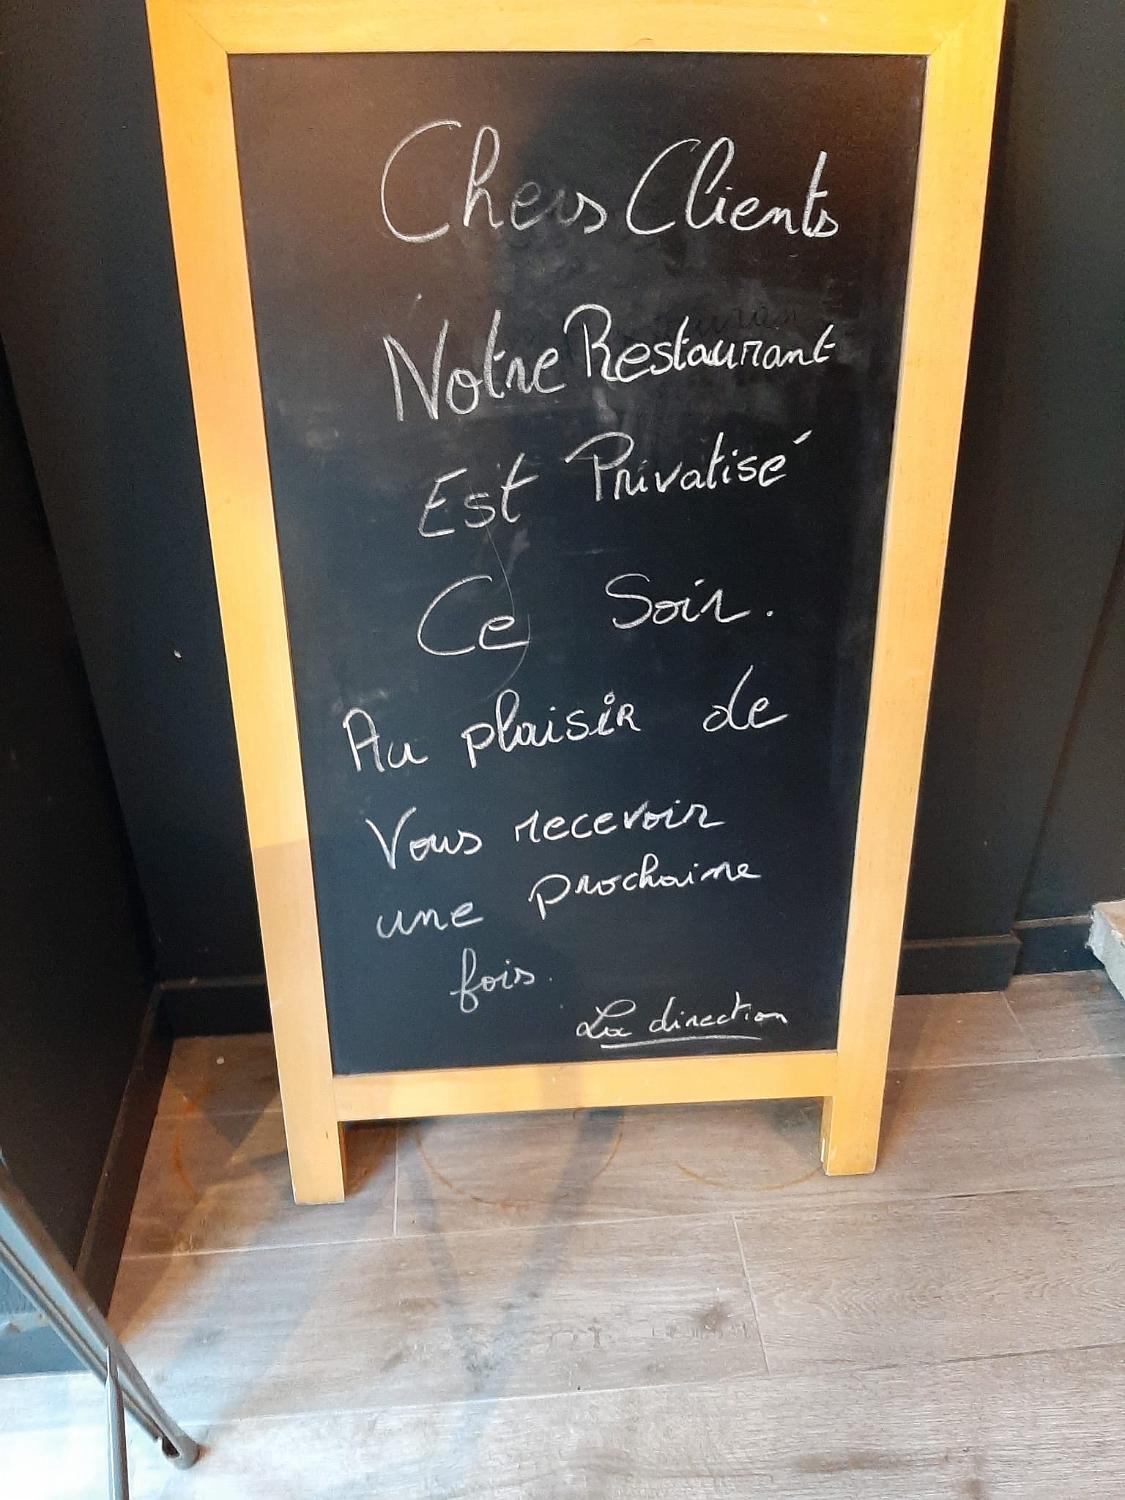 Chers Clients
Notre Restaurant
Est Privatisé
Ce Soir.
Au plaisir de
Vous recevoir
une prochaine
fois.
La direction